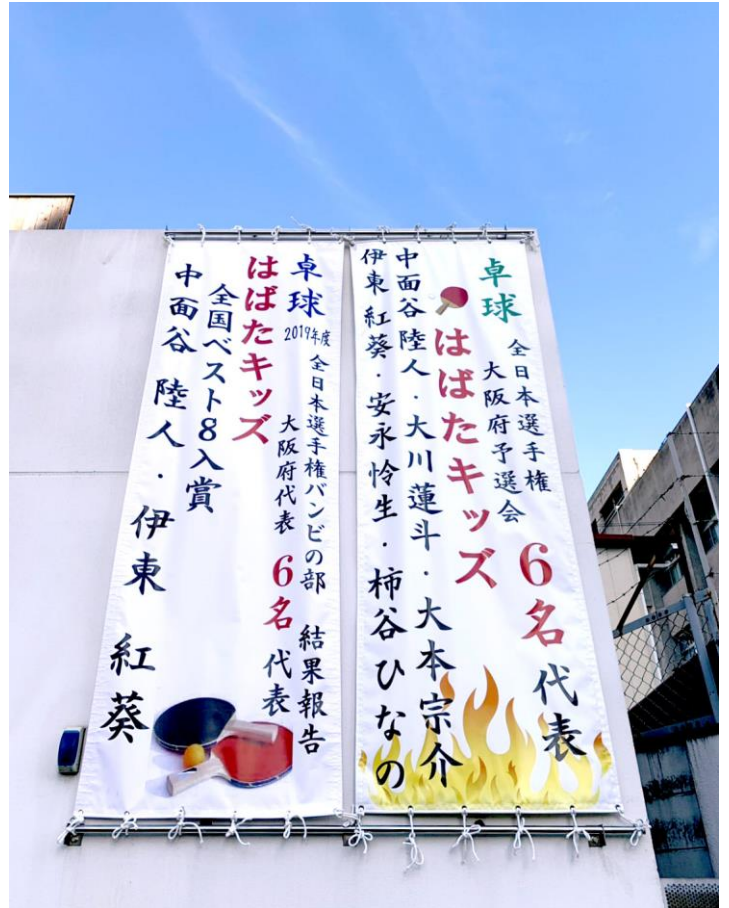 卓球
全日本選手権
大阪府予選会
6名代表
はばたキッズ
中面谷 陸人・大川蓮斗・大本宗介
伊東 紅葵・安永怜生・柿谷ひなの
卓球
2019年度
全日本選手権バンビの部 結果報告
大阪府代表 6名代表
はばたキッズ
全国ベスト8入賞
中面谷 陸人・伊東 紅葵